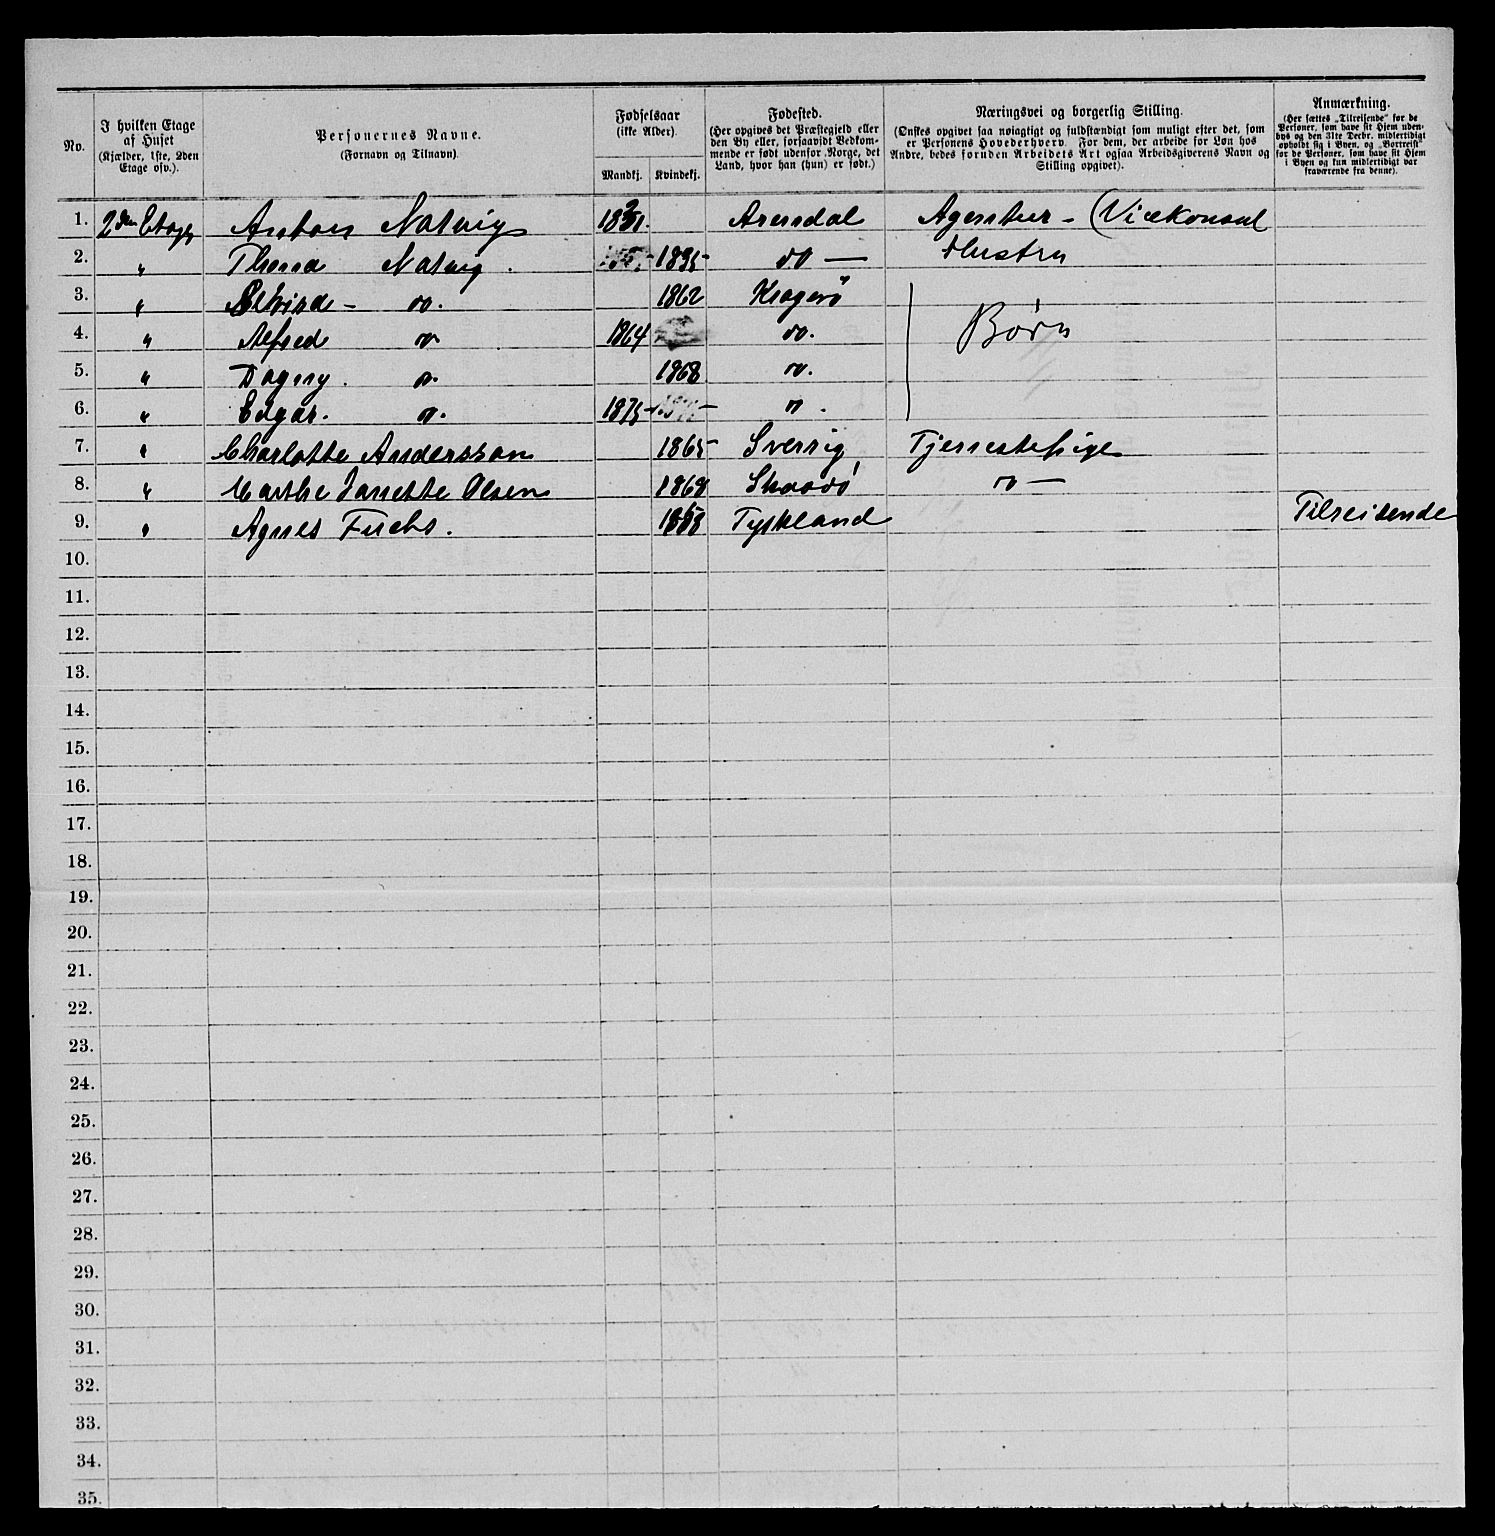 No.
I hvilken Etage af Huset
(Kjælder, 1ste, 2den Etage osv.).
Personernes Navne.
(Fornavn og Tilnavn)
Fødselsaar
(ikke Alder)
Mandkj. Kvindekj.
Fødested.
(Her opgives det Præstegjeld eller
den By eller, forsaavidt Vedkom-
mende er født udenfor Norge, det
Land, hvor han (hun) er født.)
Næringsvei og borgerlig Stilling.
(Ønskes opgivet saa nøiagtigt og fuldstændigt som muligt efter det, som
er Personens Hovederhverv. For dem, der arbeide for Løn hos
Andre, bedes foruden Arbeidets Art ogsaa Arbeidsgiverens Navn og
Stilling opgivet).
Anmærkning.
(Her sættes „Tilreisende" for de
Personer, som have sit Hjem uden-
bys og den 31te Decbr. midlertidigt
opholdt sig i Byen, og „Bortreist"
for de Personer, som have sit Hjem
i Byen og kun midlertidigt var
fraværende fra denne).
1. 2den Etage Anton Natvig Arendal Agentur - (Vicekonsul
2. " Thona Natvig. 1835 do — Hustru
3. " Elvira - do. 1862 Kragerö
4. " Alfred do 1864 do. Børn
5. " Dagny. do. 1868 do.
6. " Edgar. do. 1875 do.
7. " Charlotte Andersson 1865 Sverrig Tjenestepige
8. " Marthe Janette Olsen 1868 Skaadö do —
9. " Agnes Fuchs. Tyskland Tilreisende
10.
11.
12.
13.
14.
15.
16.
17.
18.
19.
20.
21.
22.
23.
24.
25.
26.
27.
28.
29.
30.
31.
32.
33.
34.
35.